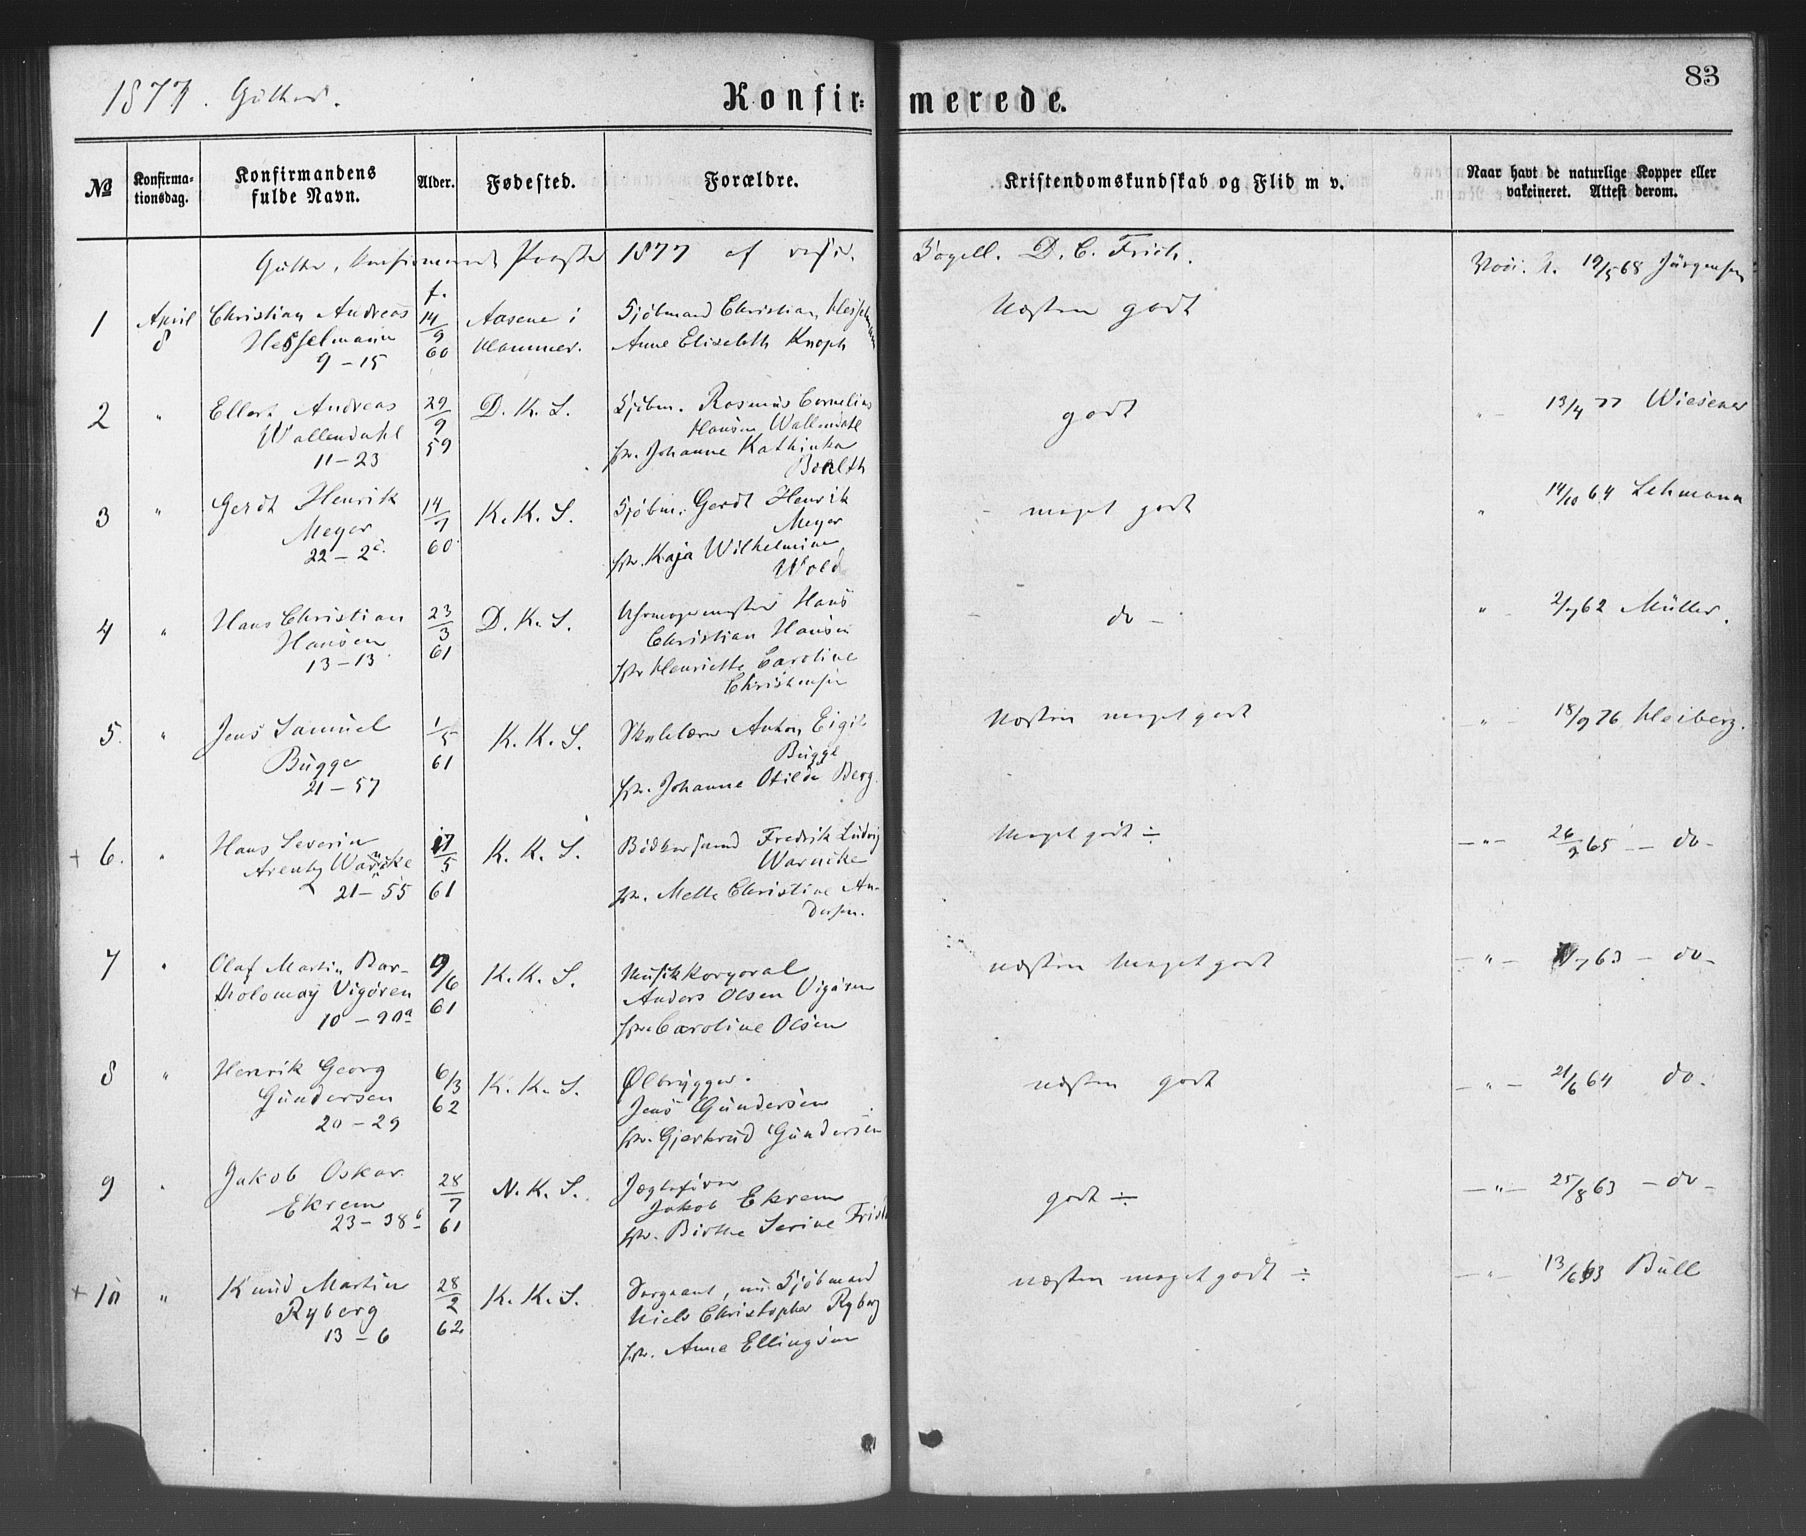 1877. Gutter.
Konfirmerede.
83
№
Konfirmationsdag.
Konfirmandens fulde Navn.
Alder.
Fødested.
Forældre.
Kristendomskundskab og Flid m v.
Naar havt de naturlige Kopper eller vakcineret. Attest derom.
1877 af
D. C. Frich.
1
April
8
Christian Andreas
Hesselmann
9 – 15
f.
14/9
60
Aasene i
Hammer.
Sjöbmand Christian Hesselmann
Anne Elisabeth Knoph
Næsten godt
19/5 68 Jürgensen
2
"
Ellert Andreas
Wallendahl
11 – 23
29/9
59
D. K. S.
Sjöbm. Rasmus Cornelius
Hansen Wallendahl
Johanne Kathinka
godt
"
13/4 77 Wiesener
3
"
Gerdt Henrik
Meyer
22 –
14/7
60
K. K. S.
Sjöbm. Gerdt Henrik
Meyer
Kaja Wilhelmine
Wold
meget godt
"
14/10 64 Lehmann
4
"
Hans Christian
Hansen
13 – 13
23/3
61
D. K. S.
Uhrmagermester Hans
Christian Hansen
Henriette Caroline
Christensen
do –
"
62 Müller.
5.
"
Jens Samuel
Bugge
21 – 57
1/5
61
K. K. S.
Skolelærer Anton Eigil
Bugge
Johanne Otilde Berg.
Næsten meget godt
"
18/9 76 Heiberg.
+ 6.
"
Hans Severin
Arentz Warncke
21 – 55
17/5
61
K. K. S.
Bödkersvend Fredrik Ludvig
Warncke
Mette Christine An-
dersen.
Meget godt ÷
– " –
26/9 65 – do –
7
"
Olaf Martin Bar-
tholomæy Vigören
10 –
9/6
61
K. K. S.
Musikkorporal
Anders Olsen Vigören
Caroline Olsen
næsten Meget godt
– " –
63 – do –
8
"
Henrik Georg
Gundersen
20 – 29
6/3
62
K. K. S.
Ølbrygger.
Jens Gundersen
Gjertrud Gundersen
næsten godt
– " –
21/6 64 do.
9
"
Jakob Oskar
Ekrem
23 – 38 b
28/7
61
N. K. S.
Jægteförer
Jakob Ekrem
Birthe Serine
godt ÷
– " –
25/8 63 – do –
+ 10
"
Knud Martin
Ryberg
13 – 6
28/2
62
K. K. S.
Sergeant, nu Sjöbmand
Niels Christopher Ryberg
Anne Ellingsen
næsten meget godt ÷
– " –
13/6 63 Bull